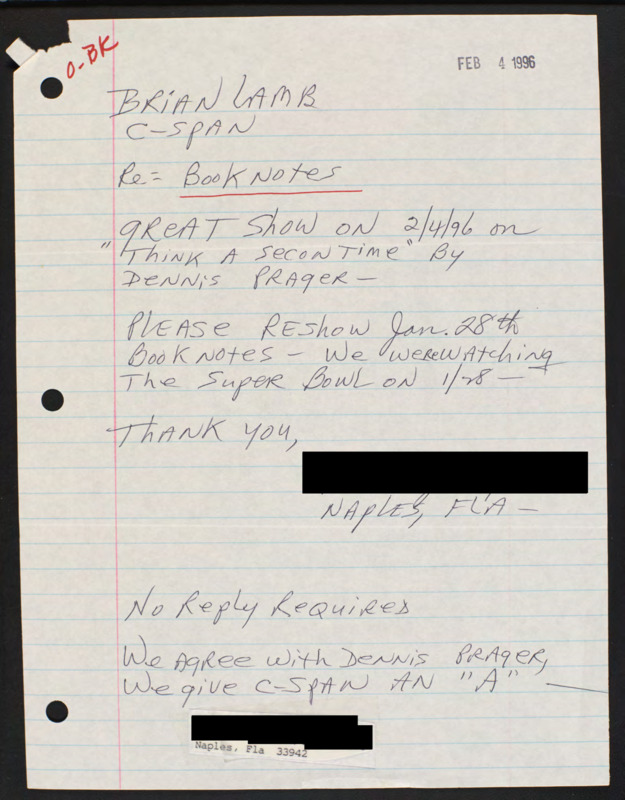 O-BK
FEB 4 1996
BRIAN LAMB
C-SPAN
Re= BOOK NOTES
GREAT SHOW ON 2/4/96 on
"THINK A SECON TIME" BY
DENNIS PRAGER —
PLEASE RESHOW Jan. 28th
BOOK NOTES - We WERE WATCHING
THE SUPER BOWL ON 1/28 —
THANK YOU,
NAPLES, FLA —
NO Reply Required
We AGREE WITH DENNIS PRAGER,
We give C-SPAN AN "A" —
Naples, Fla 33942